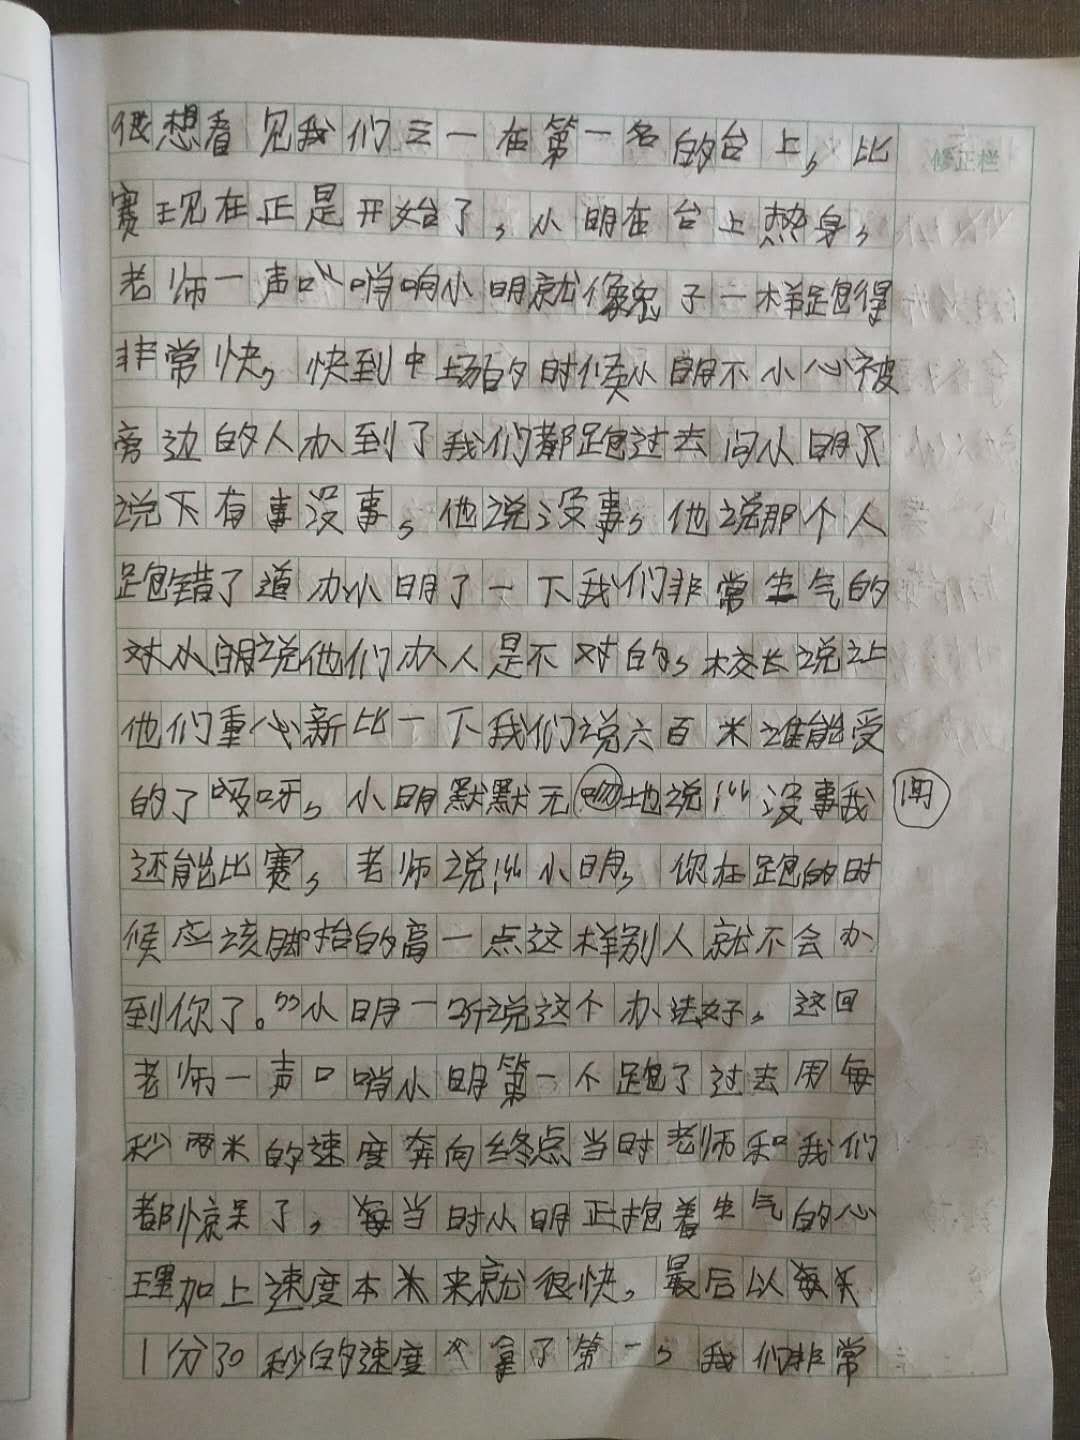 很想看见我们三一在第一名的台上，比
赛现在正是开始了，小明在台上热身，
老师一声口哨响小明就像兔子一样跑得
非常快，快到中场的时候小明不小心被
旁边的人办到了我们都跑过去问小明
说下有事没事，他说没事，他说那个人
跑错了道办小明了一下我们非常生气的
对小明说他们办人是不对的，校长说让
他们重心新比一下我们说六百米谁能受
的了吸呀，小明默默无吻地说！“没事我
还能比赛，老师说！“小明，你在跑的时
候应该脚抬的高一点这样别人就不会办
到你了。”小明一听说这个办法好，这回
老师一声口哨小明第一个跑了过去用每
秒两米的速度奔向终点当时老师和我们
都惊呆了，每当时小明正抱着生气的心
理加上速度本来就很快，最后以每
1分30秒的速度拿了第一，我们非常
修正栏
闻